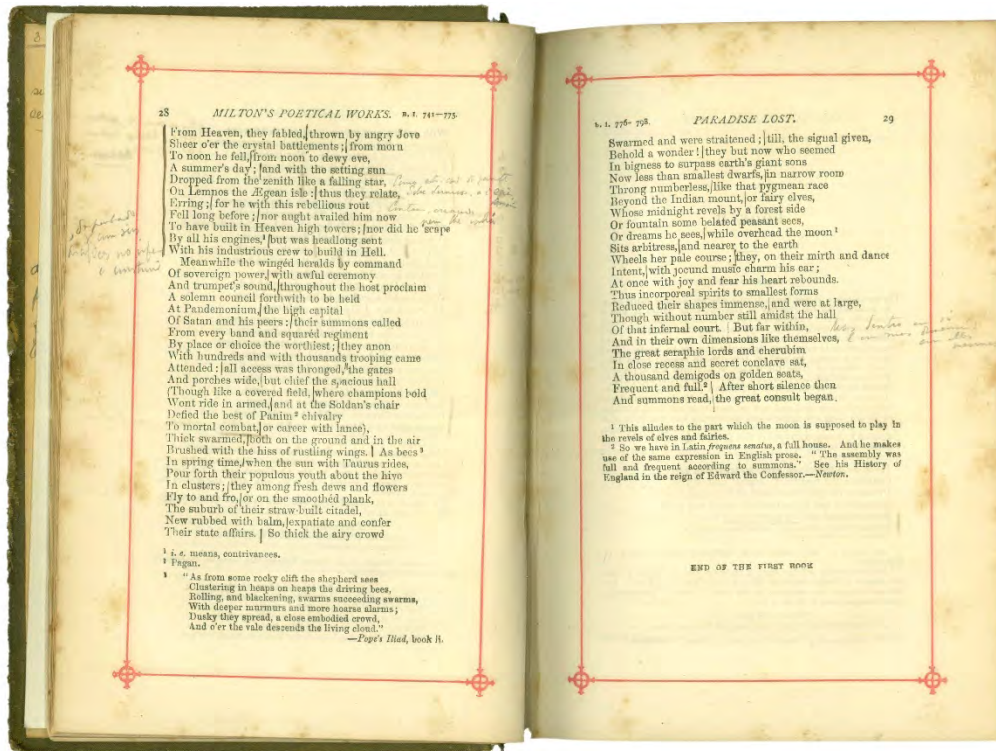 28 MILTON'S POETICAL WORKS. B. I. 741—775.
From Heaven, they fabled, thrown by angry Jove
Sheer o'er the crystal battlements; from morn
To noon he fell, from noon to dewy eve,
A summer's day; and with the setting sun
Dropped from the zenith like a falling star,
On Lemnos the Ægean isle: thus they relate,
Erring; for he with this rebellious rout
Fell long before; nor aught availed him now
To have built in Heaven high towers; nor did he 'scape
By all his engines,¹ but was headlong sent
With his industrious crew to build in Hell.
Meanwhile the wingéd heralds by command
Of sovereign power, with awful ceremony
And trumpet's sound, throughout the host proclaim
A solemn council forthwith to be held
At Pandemonium, the high capital
Of Satan and his peers: their summons called
From every band and squaréd regiment
By place or choice the worthiest; they anon
With hundreds and with thousands trooping came
Attended: all access was thronged, the gates
And porches wide, but chief the spacious hall
(Though like a covered field, where champions bold
Wont ride in armed, and at the Soldan's chair
Defied the best of Panim² chivalry
To mortal combat, or career with lance),
Thick swarmed, both on the ground and in the air
Brushed with the hiss of rustling wings. As bees³
In spring time, when the sun with Taurus rides,
Pour forth their populous youth about the hive
In clusters; they among fresh dews and flowers
Fly to and fro, or on the smoothéd plank,
The suburb of their straw-built citadel,
New rubbed with balm, expatiate and confer
Their state affairs. So thick the airy crowd
¹ i. e. means, contrivances.
² Pagan.
³ "As from some rocky clift the shepherd sees
Clustering in heaps on heaps the driving bees,
Rolling, and blackening, swarms succeeding swarms,
With deeper murmurs and more hoarse alarms;
Dusky they spread, a close embodied crowd,
And o'er the vale descends the living cloud."
—Pope's Iliad, book ii.
B. I. 776—798. PARADISE LOST. 29
Swarmed and were straitened; till, the signal given,
Behold a wonder! they but now who seemed
In bigness to surpass earth's giant sons
Now less than smallest dwarfs, in narrow room
Throng numberless, like that pygmean race
Beyond the Indian mount, or fairy elves,
Whose midnight revels by a forest side
Or fountain some belated peasant sees,
Or dreams he sees, while overhead the moon¹
Sits arbitress, and nearer to the earth
Wheels her pale course; they, on their mirth and dance
Intent, with jocund music charm his ear;
At once with joy and fear his heart rebounds.
Thus incorporeal spirits to smallest forms
Reduced their shapes immense, and were at large,
Though without number still amidst the hall
Of that infernal court. But far within,
And in their own dimensions like themselves,
The great seraphic lords and cherubim
In close recess and secret conclave sat,
A thousand demigods on golden seats,
Frequent and full.² After short silence then
And summons read, the great consult began.
¹ This alludes to the part which the moon is supposed to play in
the revels of elves and fairies.
² So we have in Latin frequens senatus, a full house. And he makes
use of the same expression in English prose. "The assembly was
full and frequent according to summons." See his History of
England in the reign of Edward the Confessor.—Newton.
END OF THE FIRST BOOK